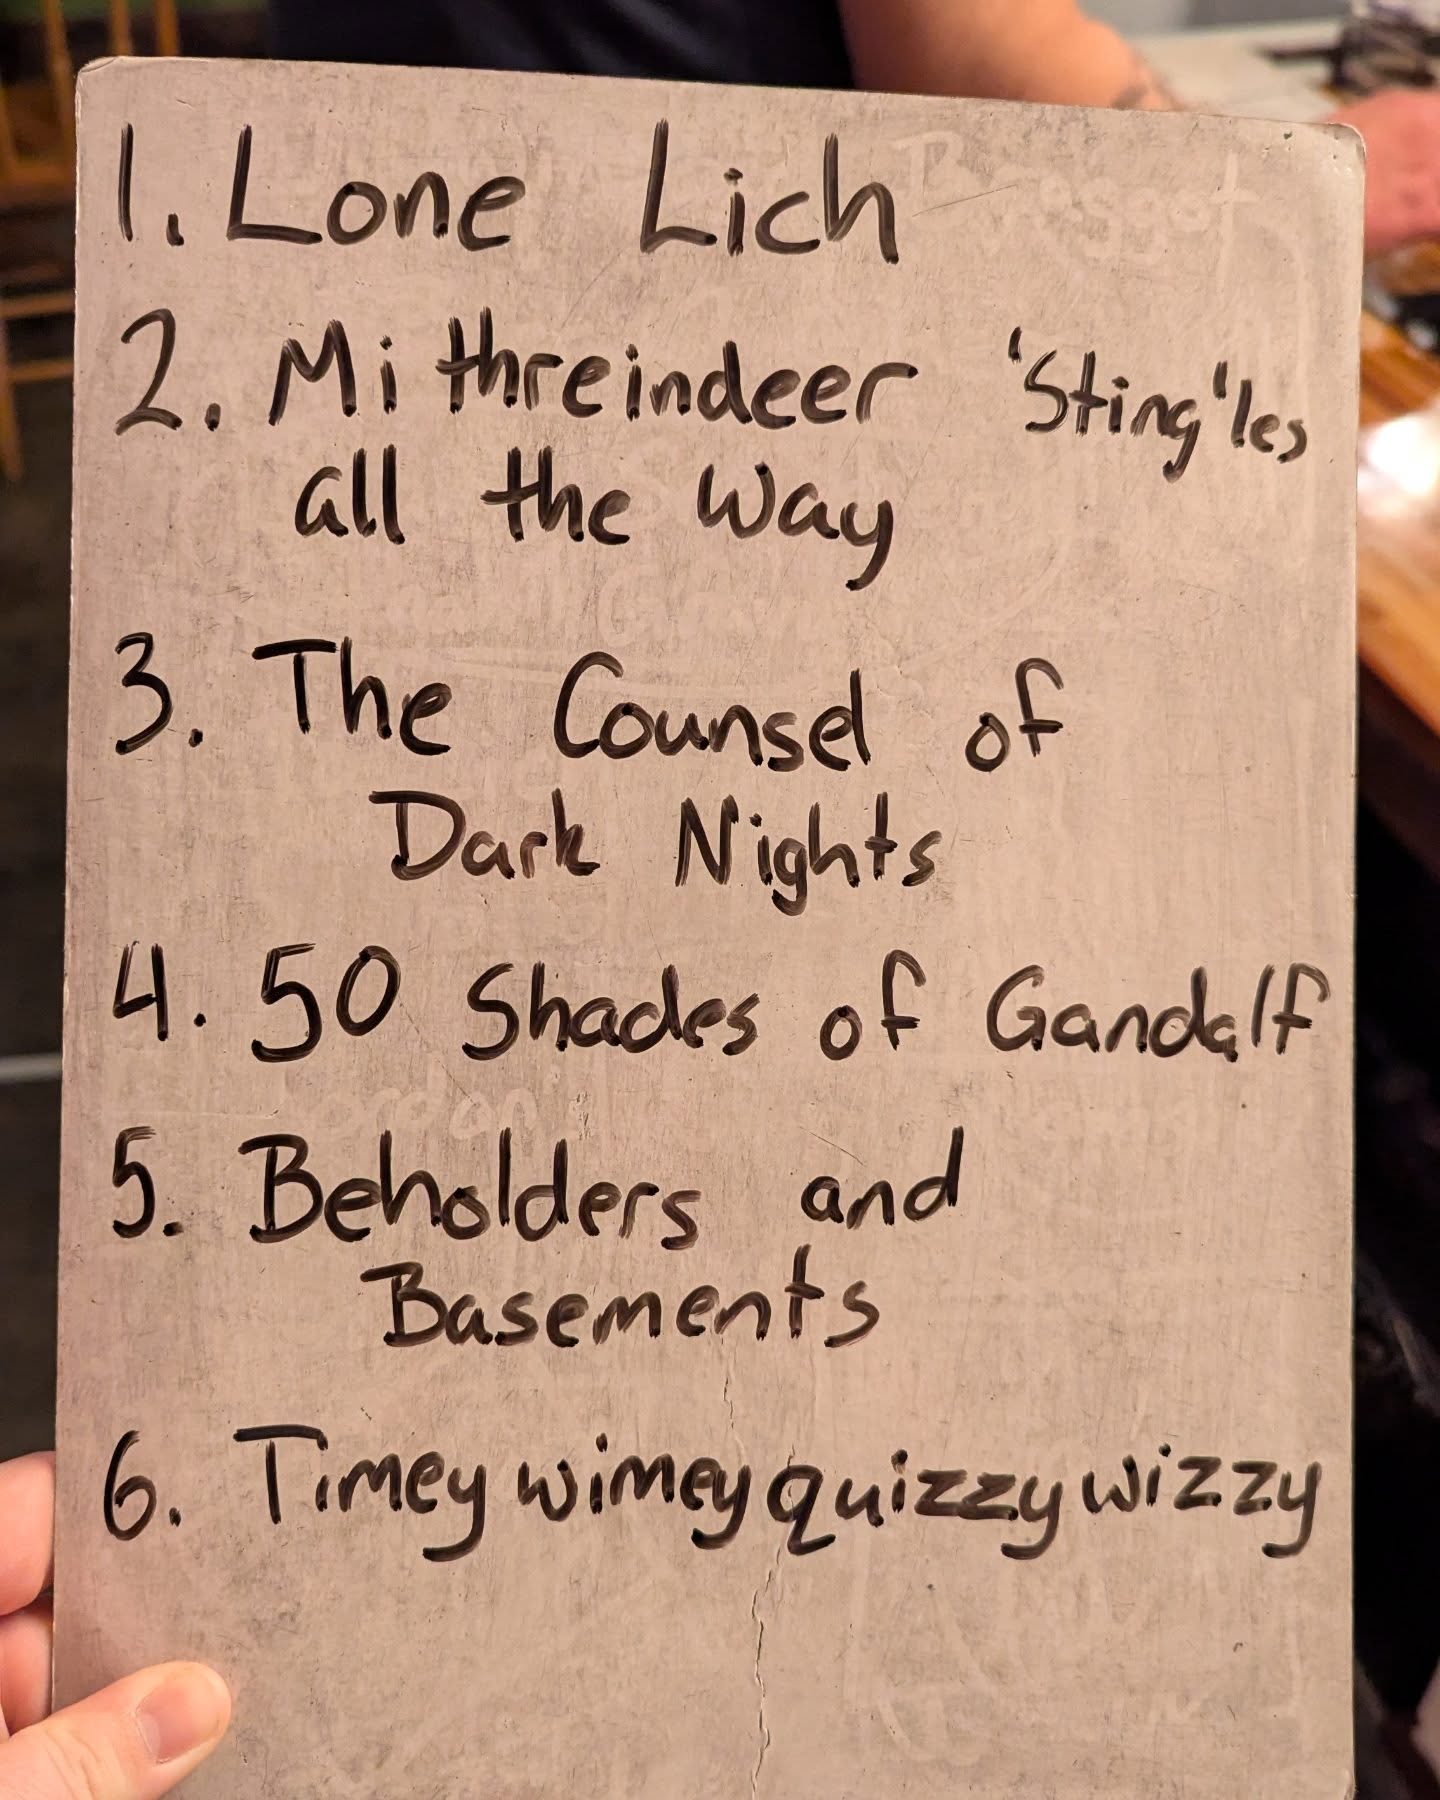 1. Lone Lich
2. Mithreindeer 'Sting'les
all the way
3. The Counsel of
Dark Nights
4. 50 Shades of Gandalf
5. Beholders and
Basements
6. Timey wimey quizzy wizzy